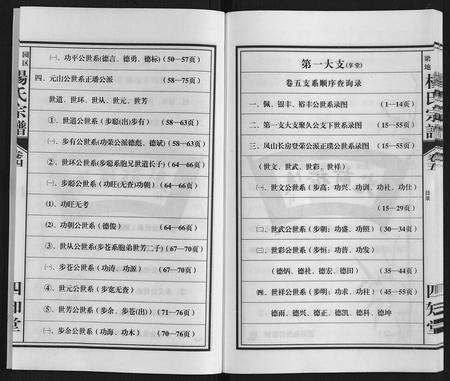 园区
楊氏宗譜
卷四
四知堂
㈠、功平公世系(德言、德勇、德标)(50—57页)
四、元山公世系正璠公派(58—75页)
世道、世环、世从、世元、世芳
①、世道公世系(步聪(出)步有)(58—63页)
㈠、步有公世系(功荣公派德彪、德斌)(58—63页)
②、世环公世系(步聪系胞兄世道长子)(64—66页)
㈠、步聪公世系(功旺(无查)功朝)(64—66页)
⑴、功旺无考
⑵、功朝公世系(德俊)(64—66页)
③、世从公世系(步苍系胞弟世芳二子)(67—70页)
㈠、步苍公世系(功涛、功源)(67—70页)
④、世元公世系(步宽无查)
⑤、世芳公世系(步余、步苍(出))(71—76页)
㈠、步余公世系(功海、功木)(70—76页)
第一大支(享堂)
卷五支系顺序查询录
一、佩、银丰、裕丰公世系录图(1—14页)
二、第一支大支聚久公支下世系录图(15—55页)
三、凤山长房登荣公派正璞公世系录图(15—55页)
(世文、世武、世彩、世祥)
㈠、世文公世系(步高；功兴、功训、功社、功仕)
(15—29页)
㈡、世武公世系(步朝；功盛、功照)(30—34页)
㈢、世彩公世系(步恒；功普、功发)
(德炳、德社、德宏、德田)(35—44页)
㈣、世祥公世系(步明；功求、功柱)(45—55页)
德雨、德兴、德正、德凯、德科、德坤
梁地
楊氏宗譜
卷五
目录
四知堂